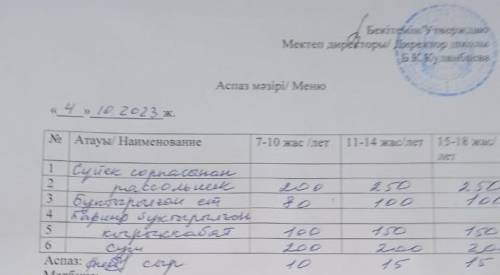 Бекітемін/Утверждаю
Мектеп директоры/ Директор школы
Аспаз мәзірі/ Меню
« 4 » 10. 2023 ж.
№ Атауы/ Наименование 7-10 жас /лет 11-14 жас/лет 15-18 жас/ лет
1 Сүйек сорпасынан
2 рассольник 200 250 250
3 Бұқтырылған ет 80 100 100
4 бұқтырылған
5 қырыққабат 100 150 150
6 200 200 20
Аспаз: сыр 10 15 15